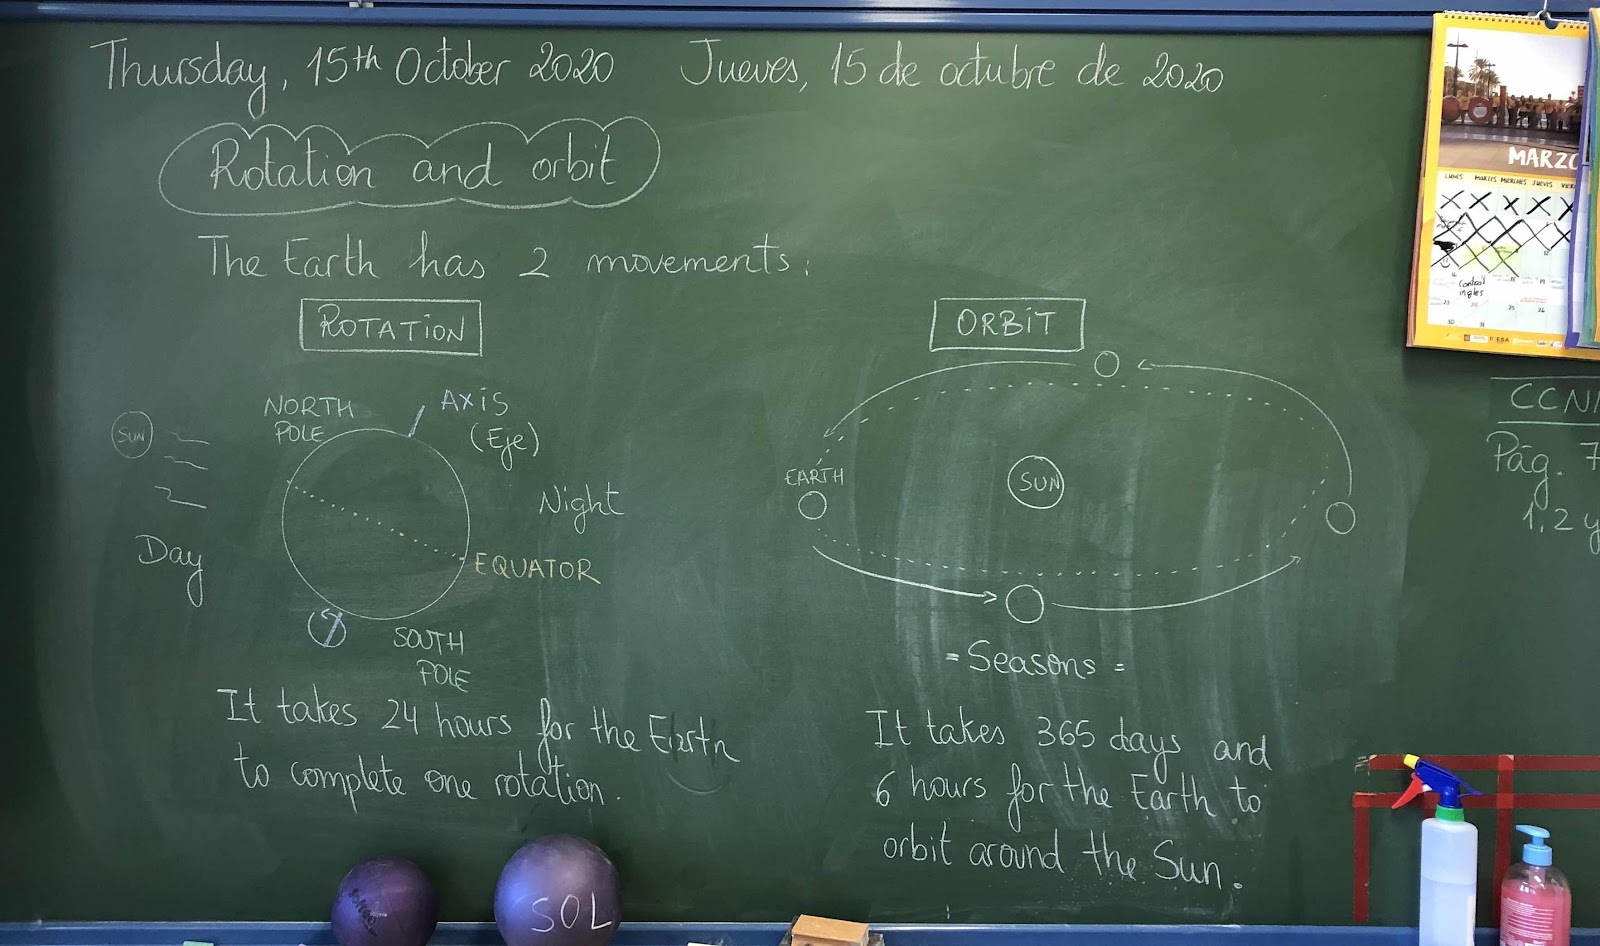 Thursday, 15th October 2020
Jueves, 15 de octubre de 2020
Rotation and orbit
The Earth has 2 movements:
ROTATION
NORTH
POLE
AXIS
(Eje)
SUN
Night
Day
EQUATOR
SOUTH
POLE
It takes 24 hours for the Earth
to complete one rotation.
ORBIT
EARTH
SUN
= Seasons =
It takes 365 days and
6 hours for the Earth to
orbit around the Sun.
CCNN
Pág. 7
1, 2 y
MARZO
LUNES MARTES MIÉRCOLES JUEVES VIER
12
16 18 19
Control
inglés
23 24 25 26
30 31
SOL